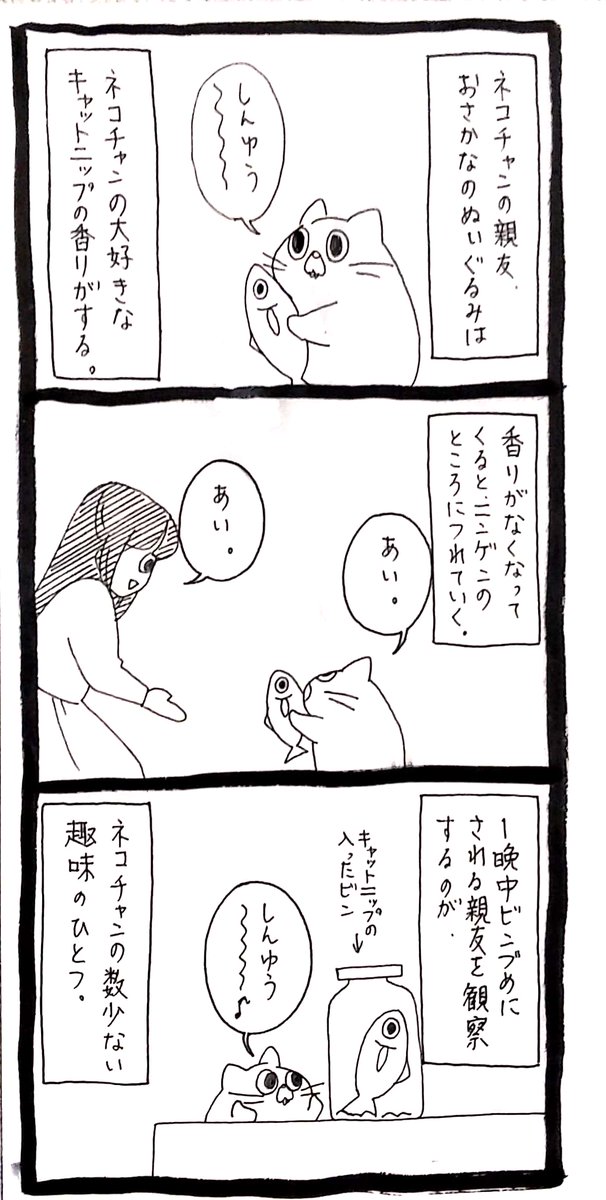 ネコチャンの親友、
おさかなのぬいぐるみは
しんゆう
〜〜〜
ネコチャンの大好きな
キャットニップの香りがする。
香りがなくなって
くると、ニンゲンの
ところにつれていく。
あい。
あい。
1晩中ビンづめに
される親友を観察
するのが、
キャットニップの
入ったビン
↓
しんゆう
〜〜〜♪
ネコチャンの数少ない
趣味のひとつ。